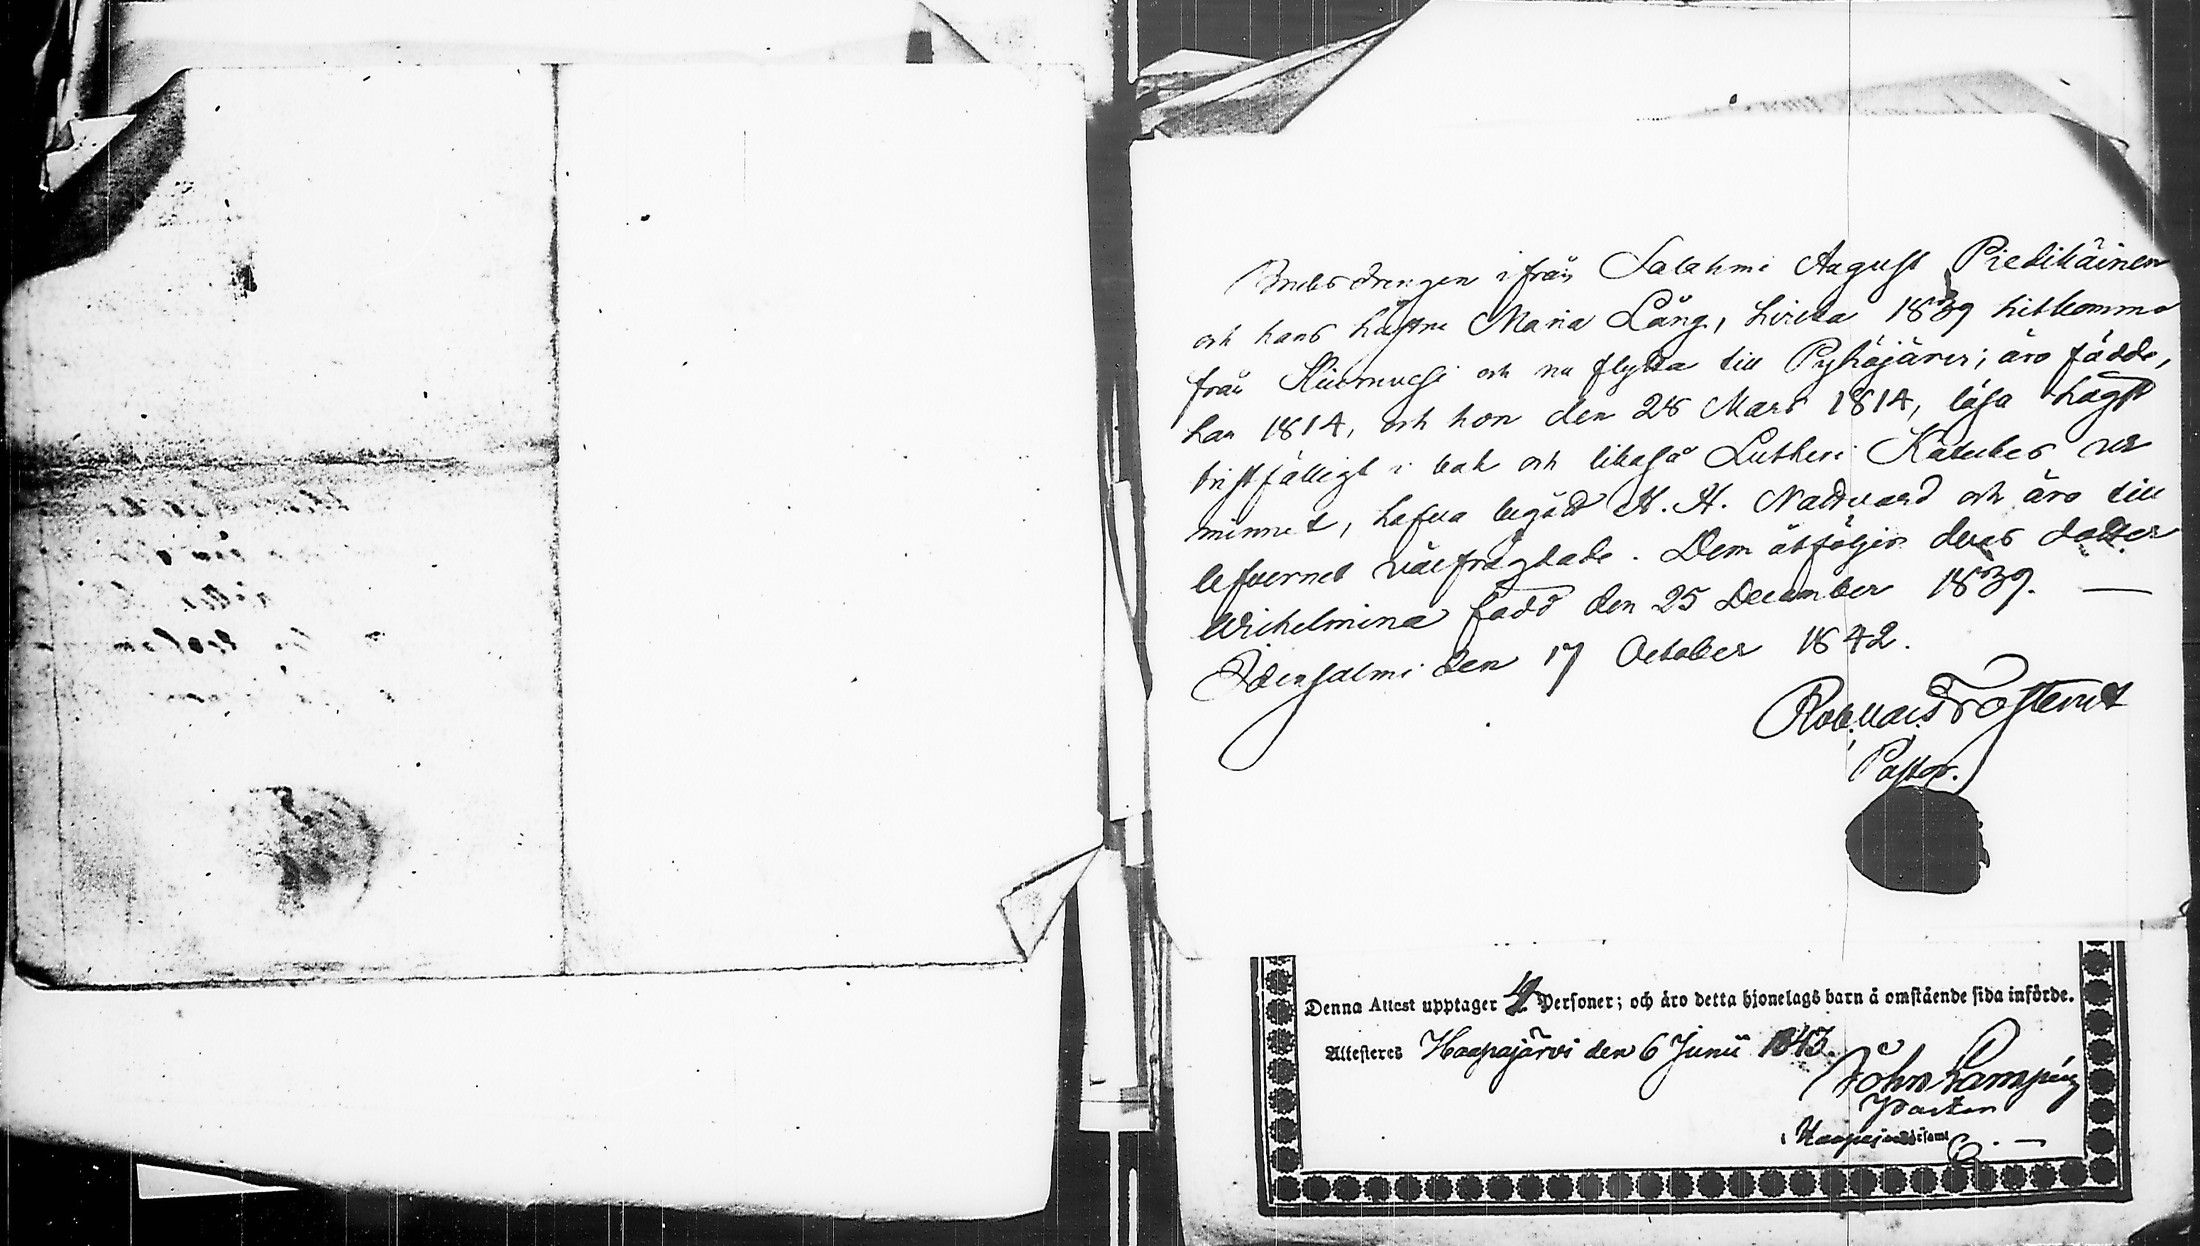 drengen ifrån Salahmi August Piedikäinen
och hans hustru Maria Lång, hvilka 1839 hitkomme
från Kiuruvesi och nu flytta till Pyhäjärvi; äro födde,
han 1814, och hon den 28 Mars 1814, läsa högst
bristfälligt i bok och likaså Lutheri Kateches ur
minnet, hafva begådt H. H. Nattvard och äro till
lefvernet välfrägdade. Dem åtföljer deras dotter
Wilhelmina född den 25 December 1839. —
Idensalmi den 17 October 1842.
Pastor.
Denna Attest upptager 4 Personer; och äro detta hjonelags barn å omstående sida införde.
Attesteres Haapajärvi den 6 Junii 1843.
Joh. Lampén
Pastor
i Haapajärvi